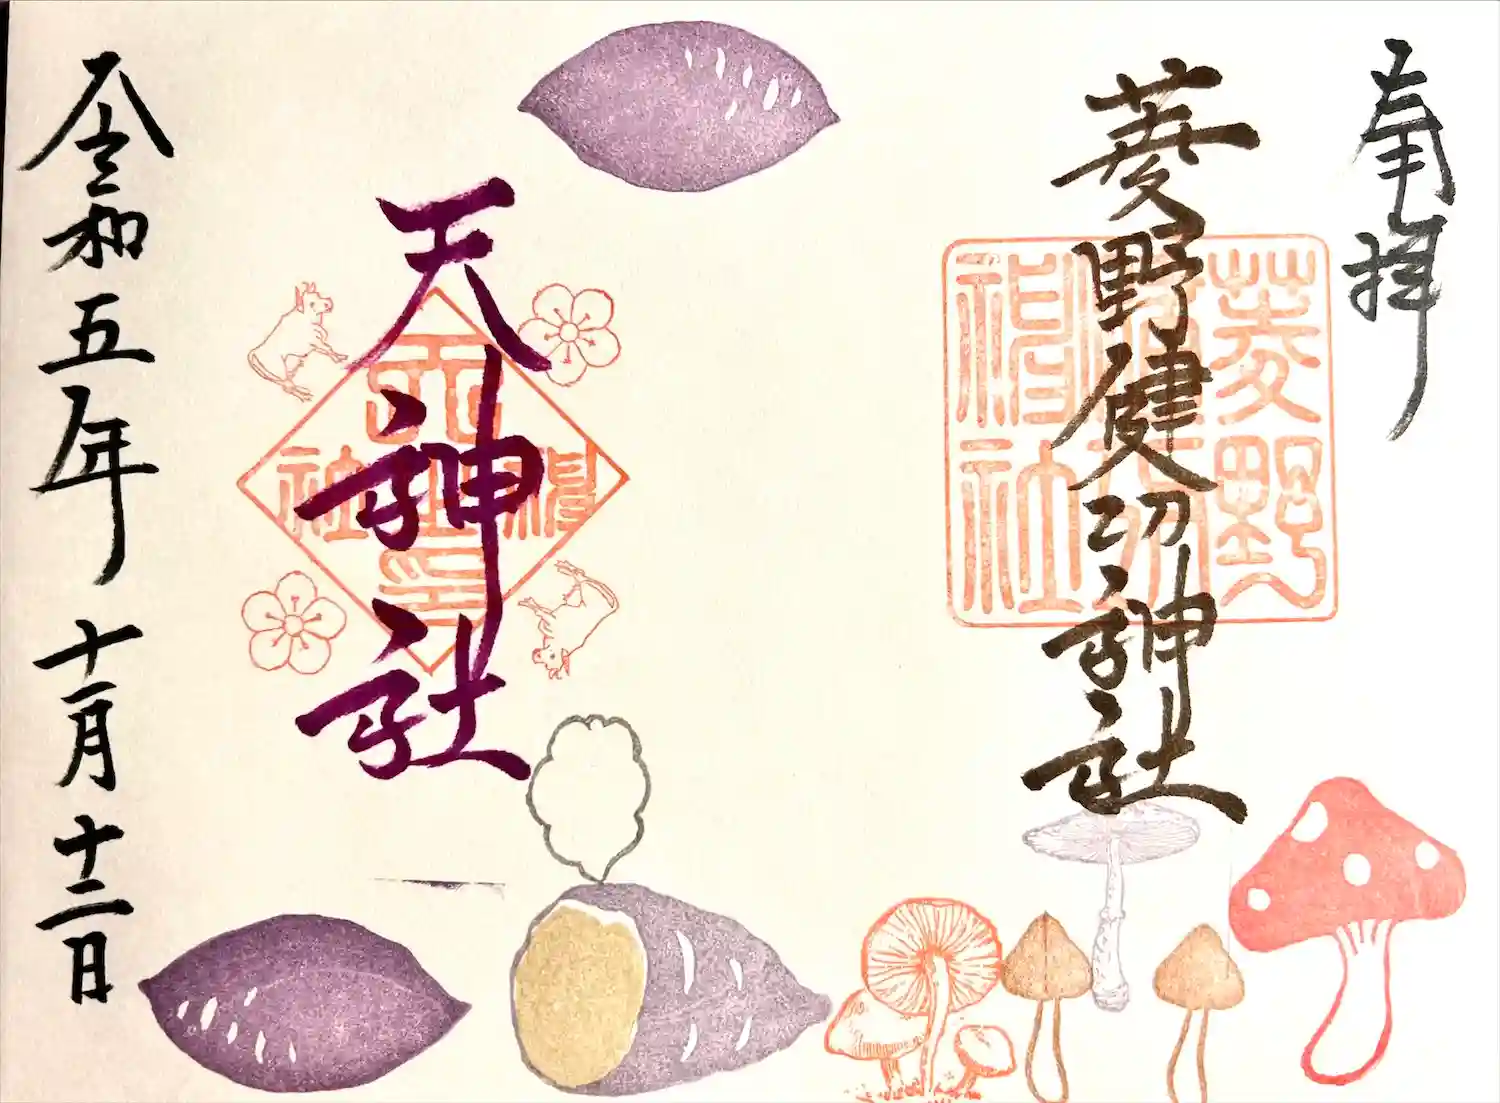 奉拝
菱野健功神社
菱野
神社
天神社
令和五年十一月十二日